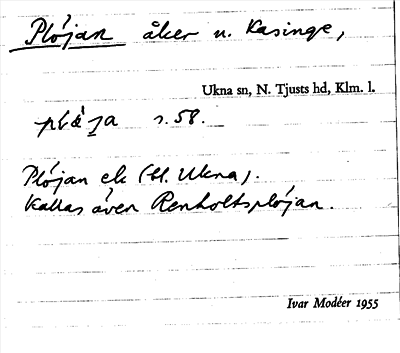 Plöjan åker n. Kasinge,
Ukna sn, N. Tjusts hd, Klm. l.
s. 58.
Plöjan ek (bl. Ukna).
Kallas även Renholtsplöjan.
Ivar Modéer 1955